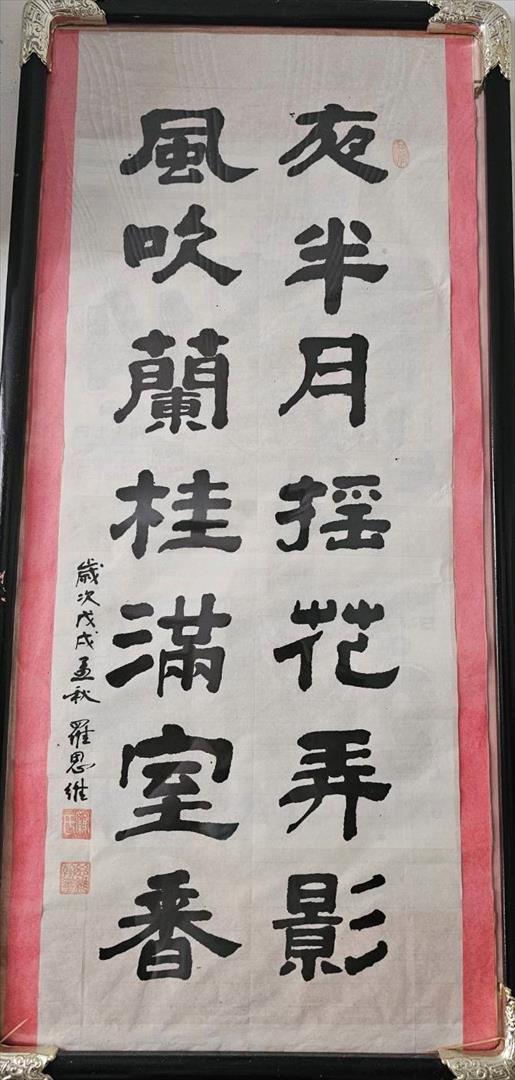 夜半月摇花弄影
風吹蘭桂滿室香
歲次戊戌孟秋 羅思維